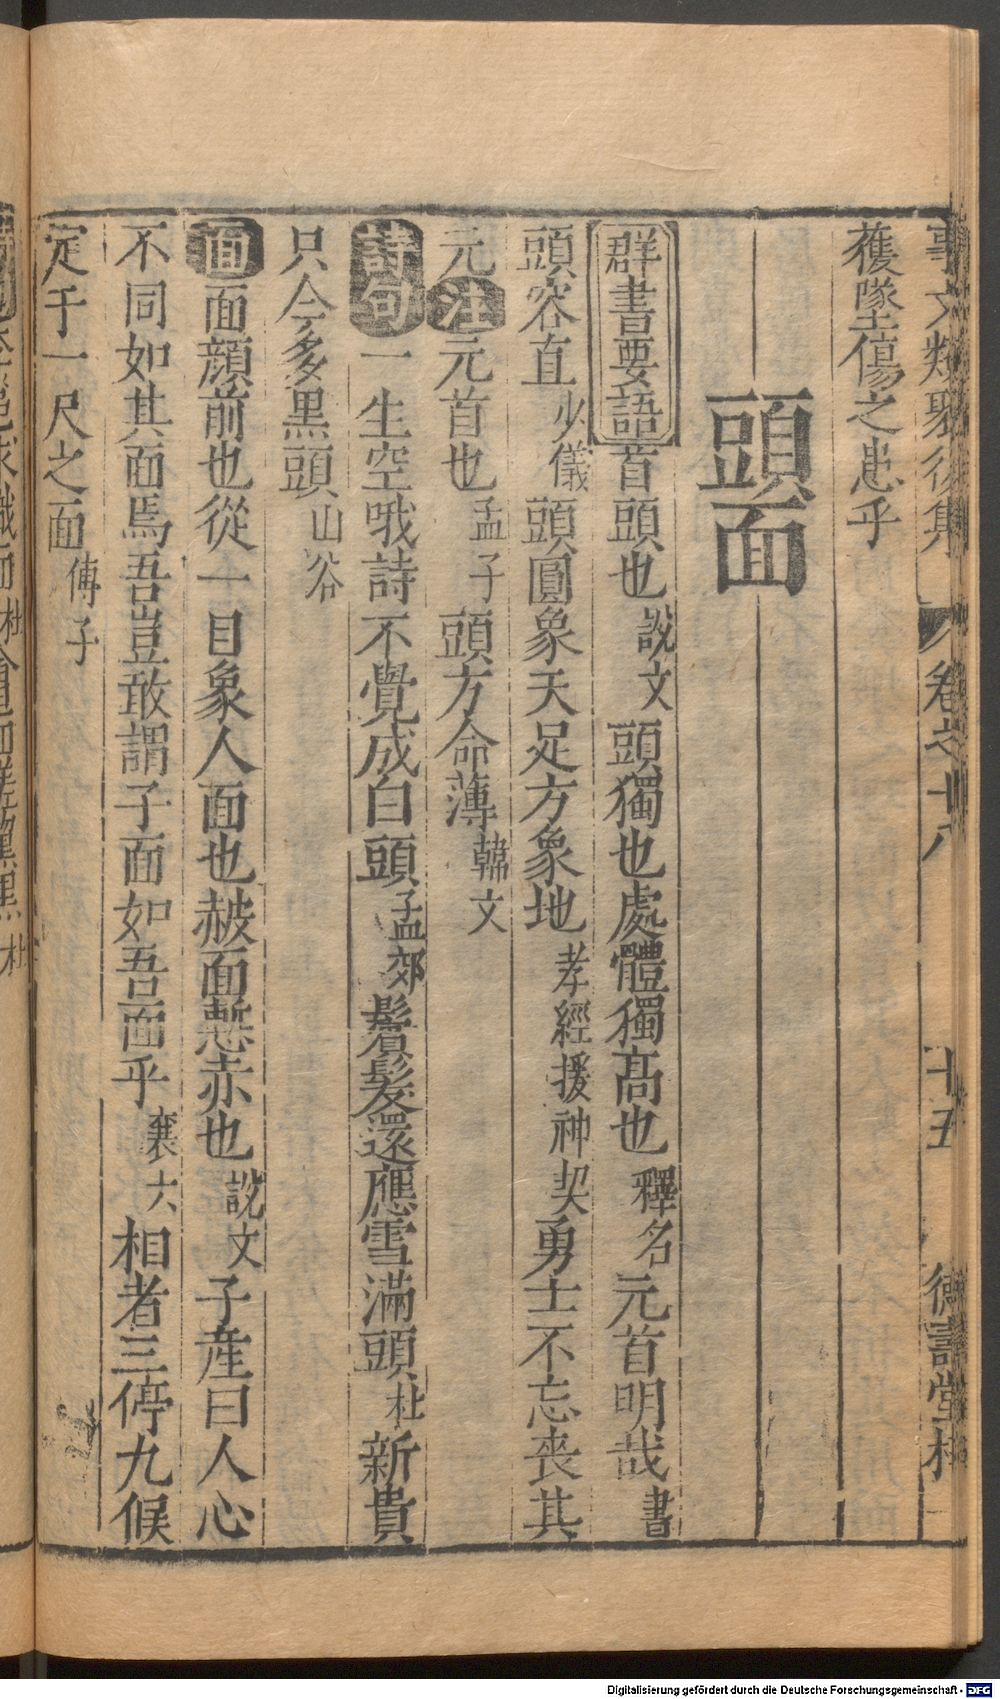 事文類聚後集 卷之十八 十五 德壽堂梓
獲墜傷之患乎
頭面
群書要語首頭也說文頭獨也處體獨高也釋名元首明哉書
頭容直少儀頭圓象天足方象地孝經援神契勇士不忘喪其
元注元首也孟子頭方命薄韓文
詩句一生空哦詩不覺成白頭孟郊鬢髮還應雪滿頭杜新貴
只今多黑頭山谷
面面顏前也從一目象人面也赧面慙赤也說文子產曰人心
不同如其面焉吾豈敢謂子面如吾面乎襄六相者三停九候
定于一尺之面傅子
Digitalisierung gefördert durch die Deutsche Forschungsgemeinschaft - DFG